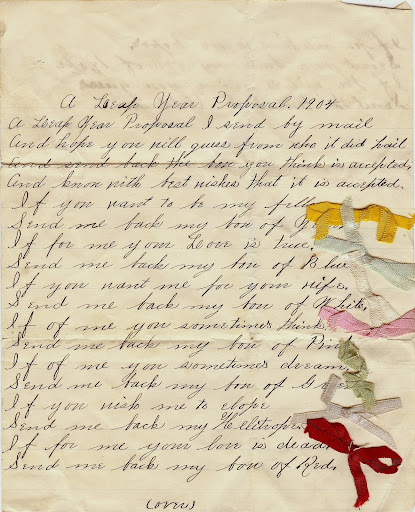 A Leap Year Proposal. 1904
A Leap Year Proposal I send by mail
And hope you will guess from who it did hail
And send back the bow you think is accepted,
And know with best wishes that it is accepted.
If you want to be my
Send me back my bow of
If for me your Love is true,
Send me back my bow of Blue
If you want me for your wife,
Send me back my bow of White,
If of me you sometimes think,
Send me back my bow of Pink
If of me you sometimes dream,
Send me back my bow of
If you wish me to elope
Send me back my Heliotrope
If for me your love is dead
Send me back my bow of Red.
(over)